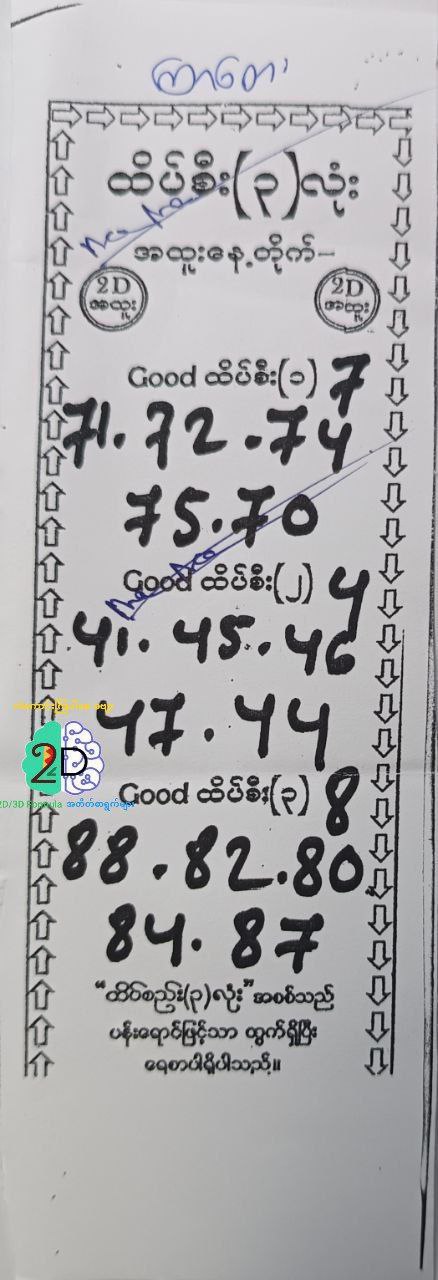 ကြာတေ'
ထိပ်စီး(၃)လုံး
အထူးနေ့တိုက်-
2D
အထူး
2D
အထူး
Good ထိပ်စီး(၁) 7
71. 72 . 74
75.70
Good ထိပ်စီး(၂) 4
41. 45. 46
47. 44
2D
2D/3D Formula အတိတ်စာရွက်များ
Good ထိပ်စီး(၃) 8
88 . 82. 80
84. 87
"ထိပ်စည်း(၃)လုံး"အစစ်သည်
ပန်းရောင်ဖြင့်သာ ထွက်ရှိပြီး
ရေစာပါရှိပါသည်။